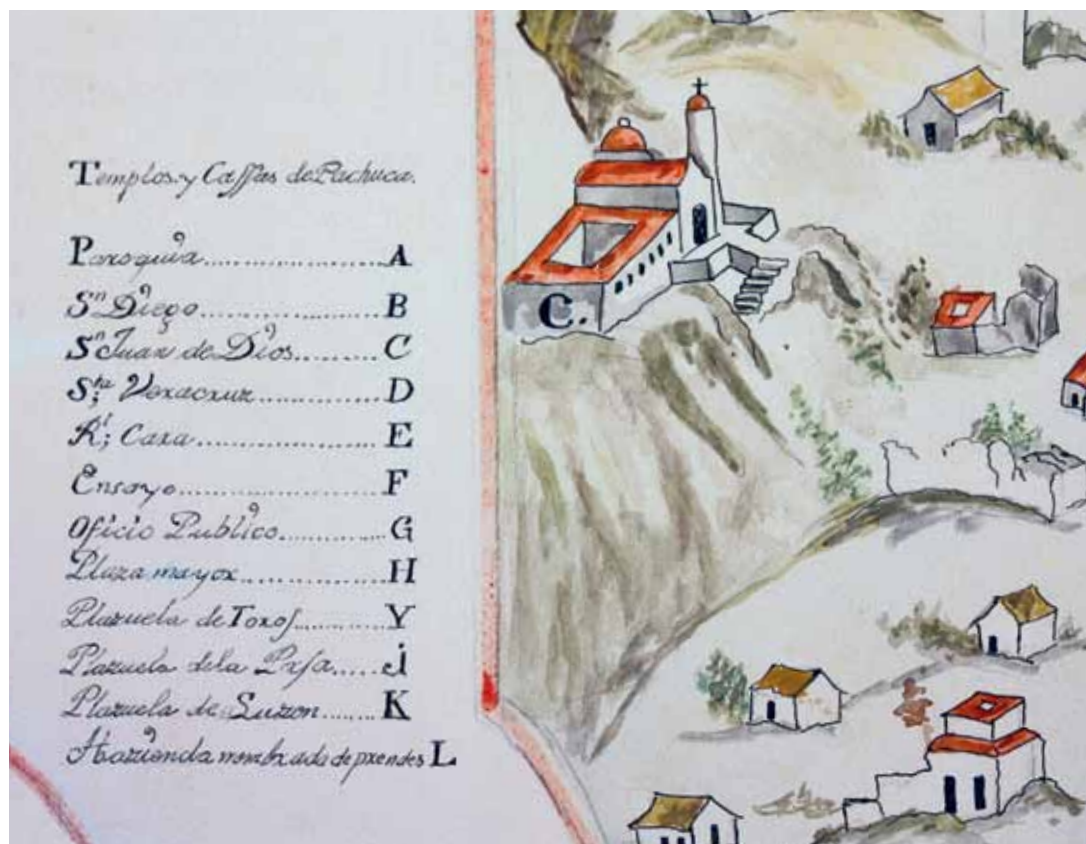 Templos. y Cassas de Pachuca.
Paroquia...................... A
Sn Diego...................... B
Sn Juan de Dios.......... C
Sta; Veracruz................ D
Rl; Caxa...................... E
Ensaye........................ F
Oficio Publico.............. G
Plaza mayor................. H
Plazuela de Toros.......... Y
Plazuela dela Presa..... J
Plazuela de Suzon....... K
Hazienda nombrada de prendes L
C.